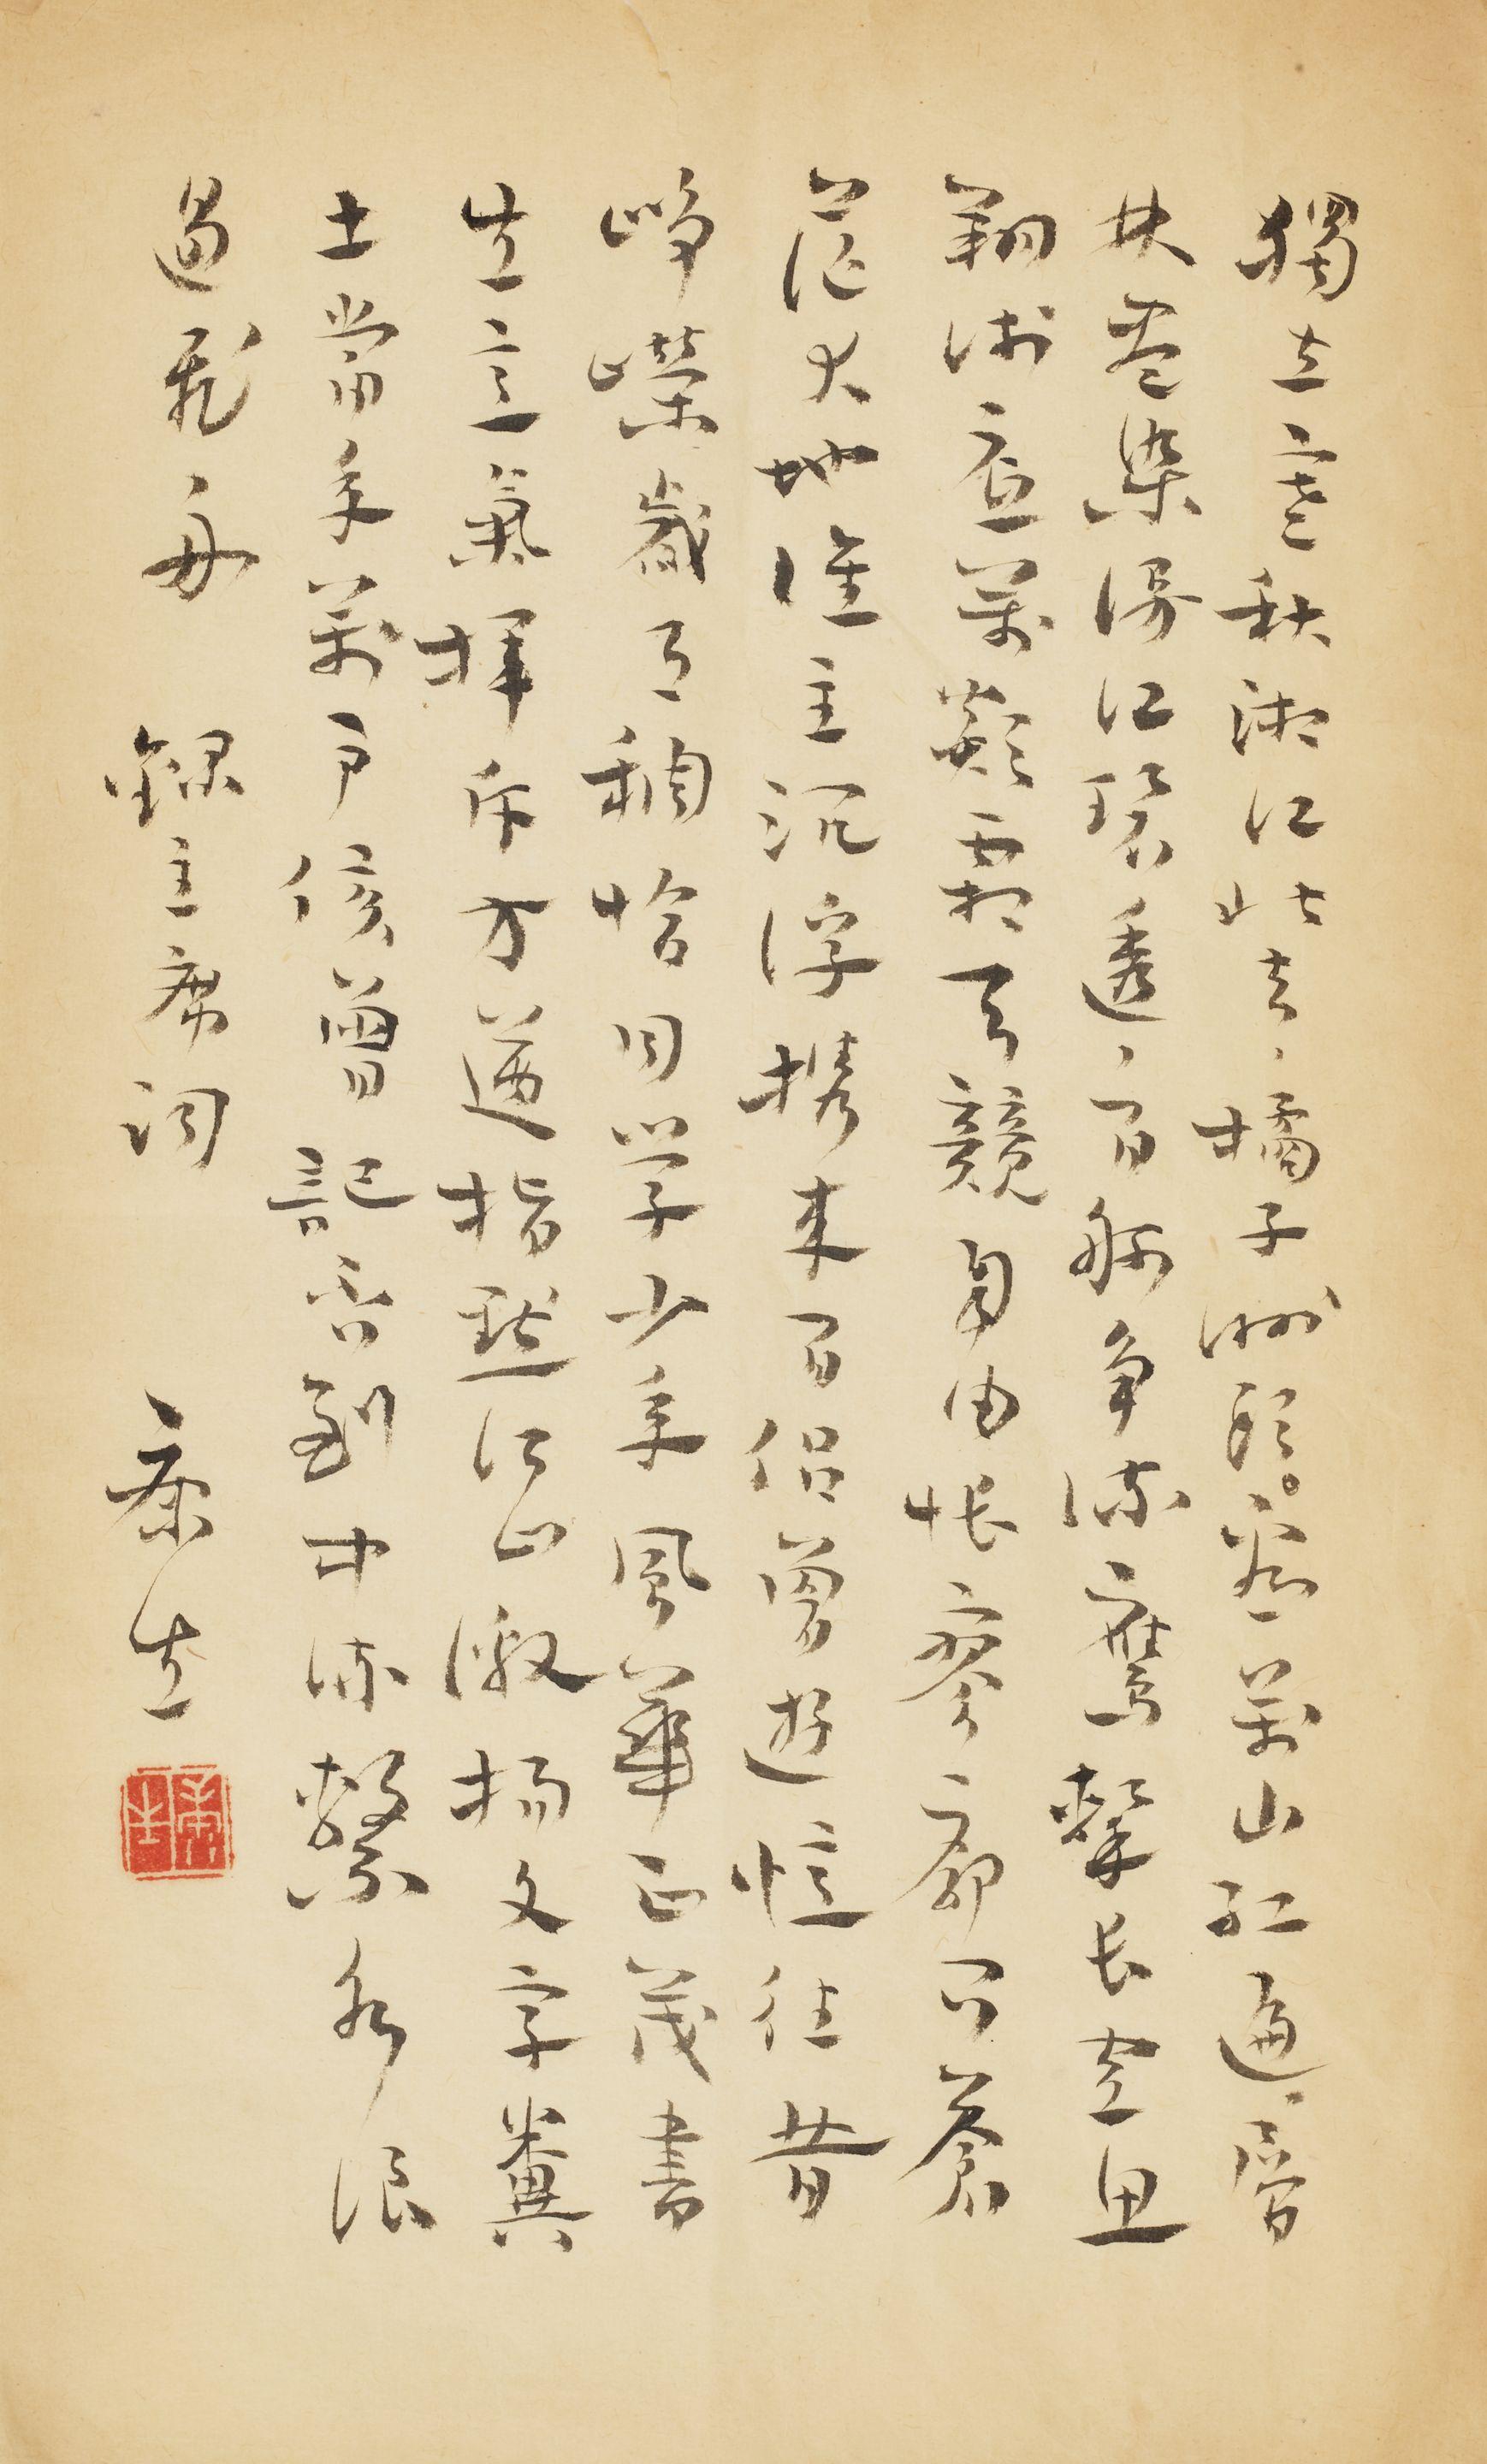 獨立寒秋湘江北去、橘子洲头。看萬山红遍、層
林盡染漫江碧透、百舸争流鷹擊长空魚
翔浅底萬類霜天競自由怅寥廓问蒼
茫大地谁主沉浮携来百侣曾遊憶往昔
峥嶸歲月稠恰同学少年風華正茂書
生意氣揮斥方遒指點江山激扬文字糞
土當年萬户侯曾記否到中流擊水浪
遏飛舟 錄主席詞 康生
康生